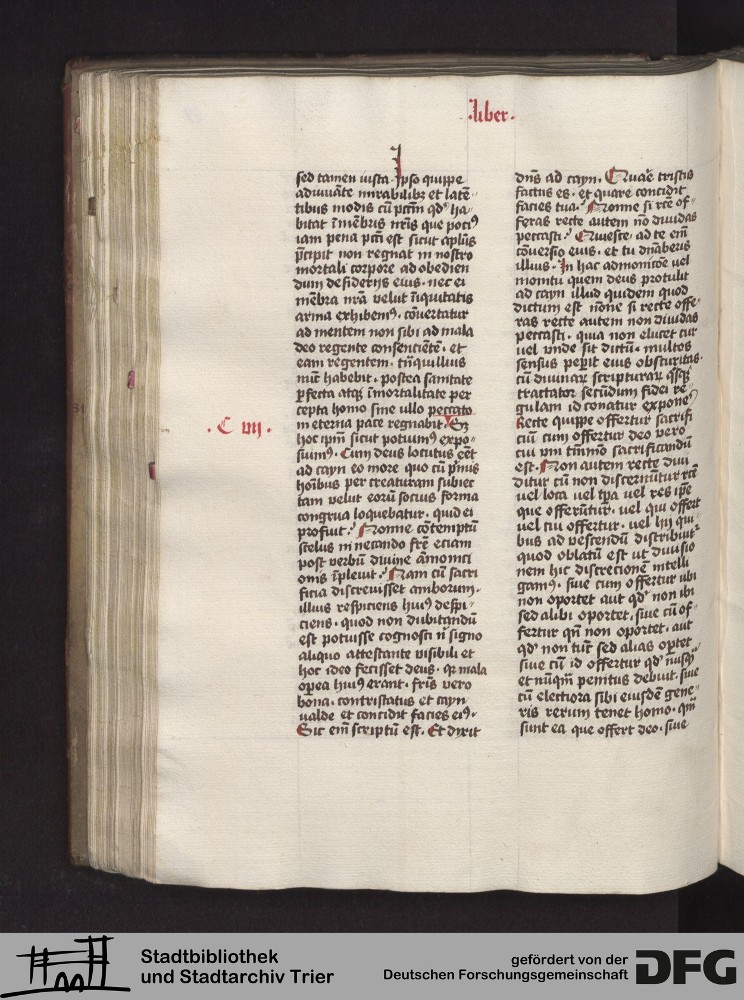 ·liber·
sed tamen iusta· Ipso quippe
adiuuāte mirabilibꝫ et latē-
tibus modis cū pctm̄ qd' ha-
bitat ī mēbris nr̄is que poci9
iam pena pcti est sicut apl̄us
p̄cipit non regnat in nostro
mortali corpore ad obedien
dum desiderijs eius· nec ei
mēbra nr̄a velut īiquitatis
arma exhibem9· cōuertatur
ad mentem non sibi ad mala
deo regente consenciētē· et
eam regentem· tn̄quillius
nūc habebit· postea sanitate
p̄fecta atqꝫ īmortalitate per
cepta homo sine ullo peccato
in eterna pace regnabit· Sꝫ
·C vij·
hoc ipm̄ sicut potuim9 expo-
suim9· Cum deus locutus eēt
ad cayn eo more quo cū p̄mis
hoībus per creaturam subiec
tam velut eorū socius forma
congrua loquebatur· quid ei
profuit· Nonne cōceptū
scelus in necando frē eciam
post verbū diuine āmonici
onis īpleuit· Nam cū sacri
ficia discreuisset amborum·
illius respiciens hui9 despi-
ciens· quod non dubitandū
est potuisse cognosci ī signo
aliquo attestante visibili et
hoc ideo fecisset deus· qꝛ mala
opera hui9 erant· fr̄is vero
bona· contristatus et cayn
valde et concidit facies ei9·
Sic em̄ scriptū est· Et dixit
dn̄s ad cayn· Quare tristis
factus es· et quare concidit
facies tua· Nonne si rc̄e of-
feras recte autem nō diuidas
peccasti· Quiesce· ad te em̄
cōuersio eius· et tu dn̄aberis
illius· In hac admonicōe vel
monitu quem deus protulit
ad cayn illud quidem quod
dictum est nōne si recte offe-
ras recte autem non diuidas
peccasti· quia non elucet cur
vel vnde sit dictū· multos
sensus pepit eius obscuritas·
cū diuinaꝝ scripturaꝝ qsqꝫ
tractator secūdum fidei re-
gulam id conatur expone'
Recte quippe offertur sacrifi
ciū cum offertur deo vero
cui vni tm̄mō sacrificandū
est· Non autem recte diui
ditur cū non discernūtur rc̄e
vel loca vel tp̄a vel res ip̄e
que offerūtur· vel qui offert
vel cui offertur· vel hij qui-
bus ad vescendū distribuit'
quod oblatū est ut diuisio
nem hic discrecionē intelli
gam9· siue cum offertur ubi
non oportet aut qd' non ibi
sed alibi oportet· siue cū of-
fertur qn̄ non oportet· aut
qd' non tūc sed alias optet
siue cū id offertur qd' nusq̄
et nūq̄m penitus debuit· siue
cū electiora sibi eiusdē gene-
ris rerum tenet homo· qm̄
sunt ea que offert deo· siue
Stadtbibliothek
und Stadtarchiv Trier
gefördert von der
Deutschen Forschungsgemeinschaft
DFG